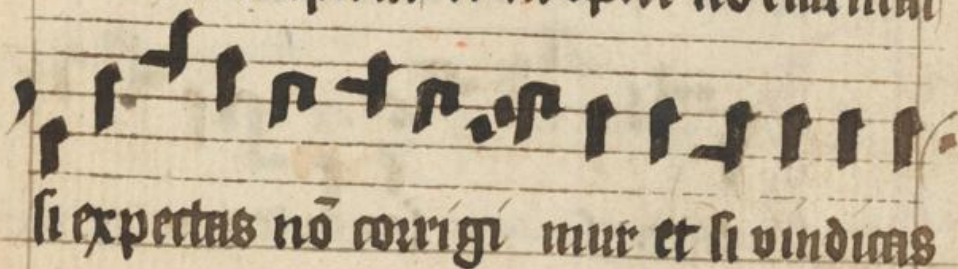 si expectas nō corrigi mur et si vindicas